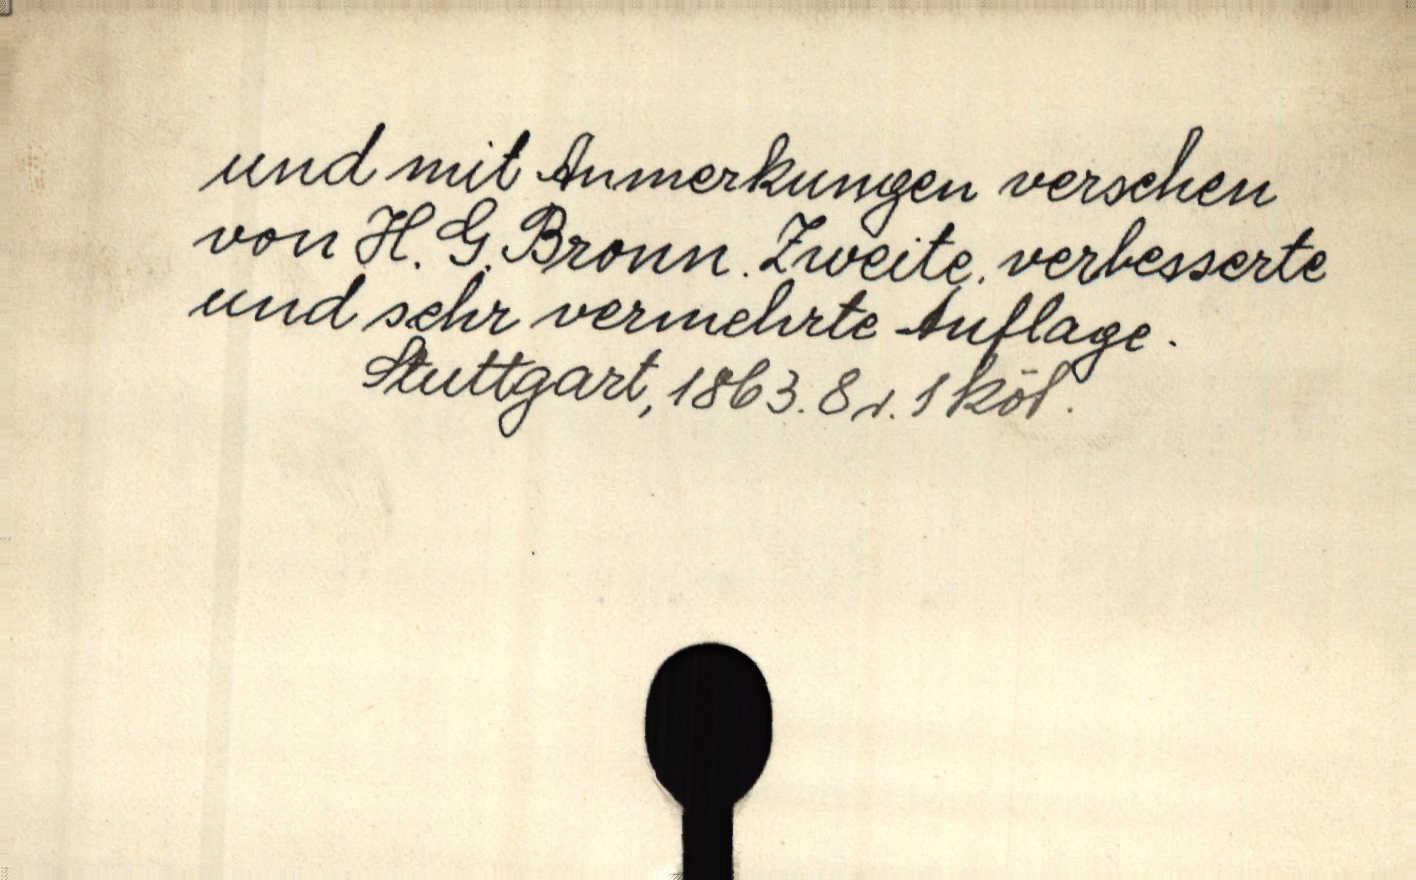 und mit Anmerkungen versehen
von H. G. Bronn. Zweite, verbesserte
und sehr vermehrte Auflage.
Stuttgart, 1863. 8 r. 1 köt.